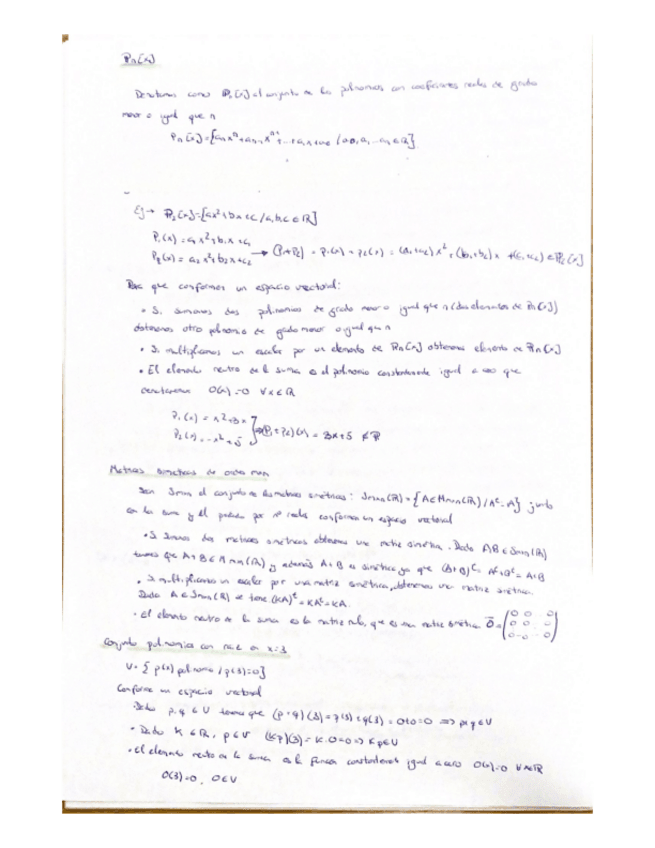 Pn[x]
Denotamos como Pn[x] al conjunto de los polinomios con coeficientes reales de grado
menor o igual que n
Pn[x]={anxⁿ+an-1xⁿ⁻¹+...+a1x+a0 /a0,a1...an∈R}
Ej→ P2[x]={ax²+bx+c/a,b,c∈R}
P1(x) = a1x²+b1x+c1
P2(x) = a2x²+b2x+c2 → (P1+P2) = P1(x) + P2(x) = (a1+a2)x²+(b1+b2)x+(c1+c2)∈P2[x]
que conforman un espacio vectorial:
• Si sumamos dos polinomios de grado menor o igual que n (dos elementos de Pn[x])
obtenemos otro polinomio de grado menor o igual que n
• Si multiplicamos un escalar por un elemento de Pn[x] obtenemos elemento de Pn[x]
• El elemento neutro de la suma es el polinomio constantemente igual a cero que
denotaremos O(x)=0 ∀x∈R
P1(x) = x²+3x
P2(x) = -x²+5 } ⇒(P1+P2)(x) = 3x+5 ∉P
Matrices simétricas de orden nxn
Sea Snxn el conjunto de las matrices simétricas: Snxn(R)={A∈Mnxn(R)/Aᵗ=A} junto
con la suma y el producto por nº reales conforman un espacio vectorial
• Si sumamos dos matrices simétricas obtenemos una matriz simétrica. Dado A,B∈Snxn(R)
tenemos que A+B∈Mnxn(R) y además A+B es simétrica ya que (A+B)ᵗ=Aᵗ+Bᵗ=A+B
• Si multiplicamos un escalar por una matriz simétrica, obtenemos una matriz simétrica.
Dado A∈Snxn(R) se tiene (KA)ᵗ=KAᵗ=KA.
• El elemento neutro de la suma es la matriz nula, que es una matriz simétrica O=(0 0 ... 0
0 0 ... 0
0 ... 0 ... 0)
Conjunto polinomios con raíz en x=3
V={p(x) polinomio/p(3)=0}
Conforma un espacio vectorial
Dado p,q∈V tenemos que (p+q)(3)=p(3)+q(3)=0+0=0 ⇒ p+q∈V
• Dado K∈R, p∈V (Kp)(3)=K·0=0⇒Kp∈V
• El elemento neutro de la suma es la función constantemente igual a cero O(x)=0 ∀x∈R
O(3)=0, O∈V